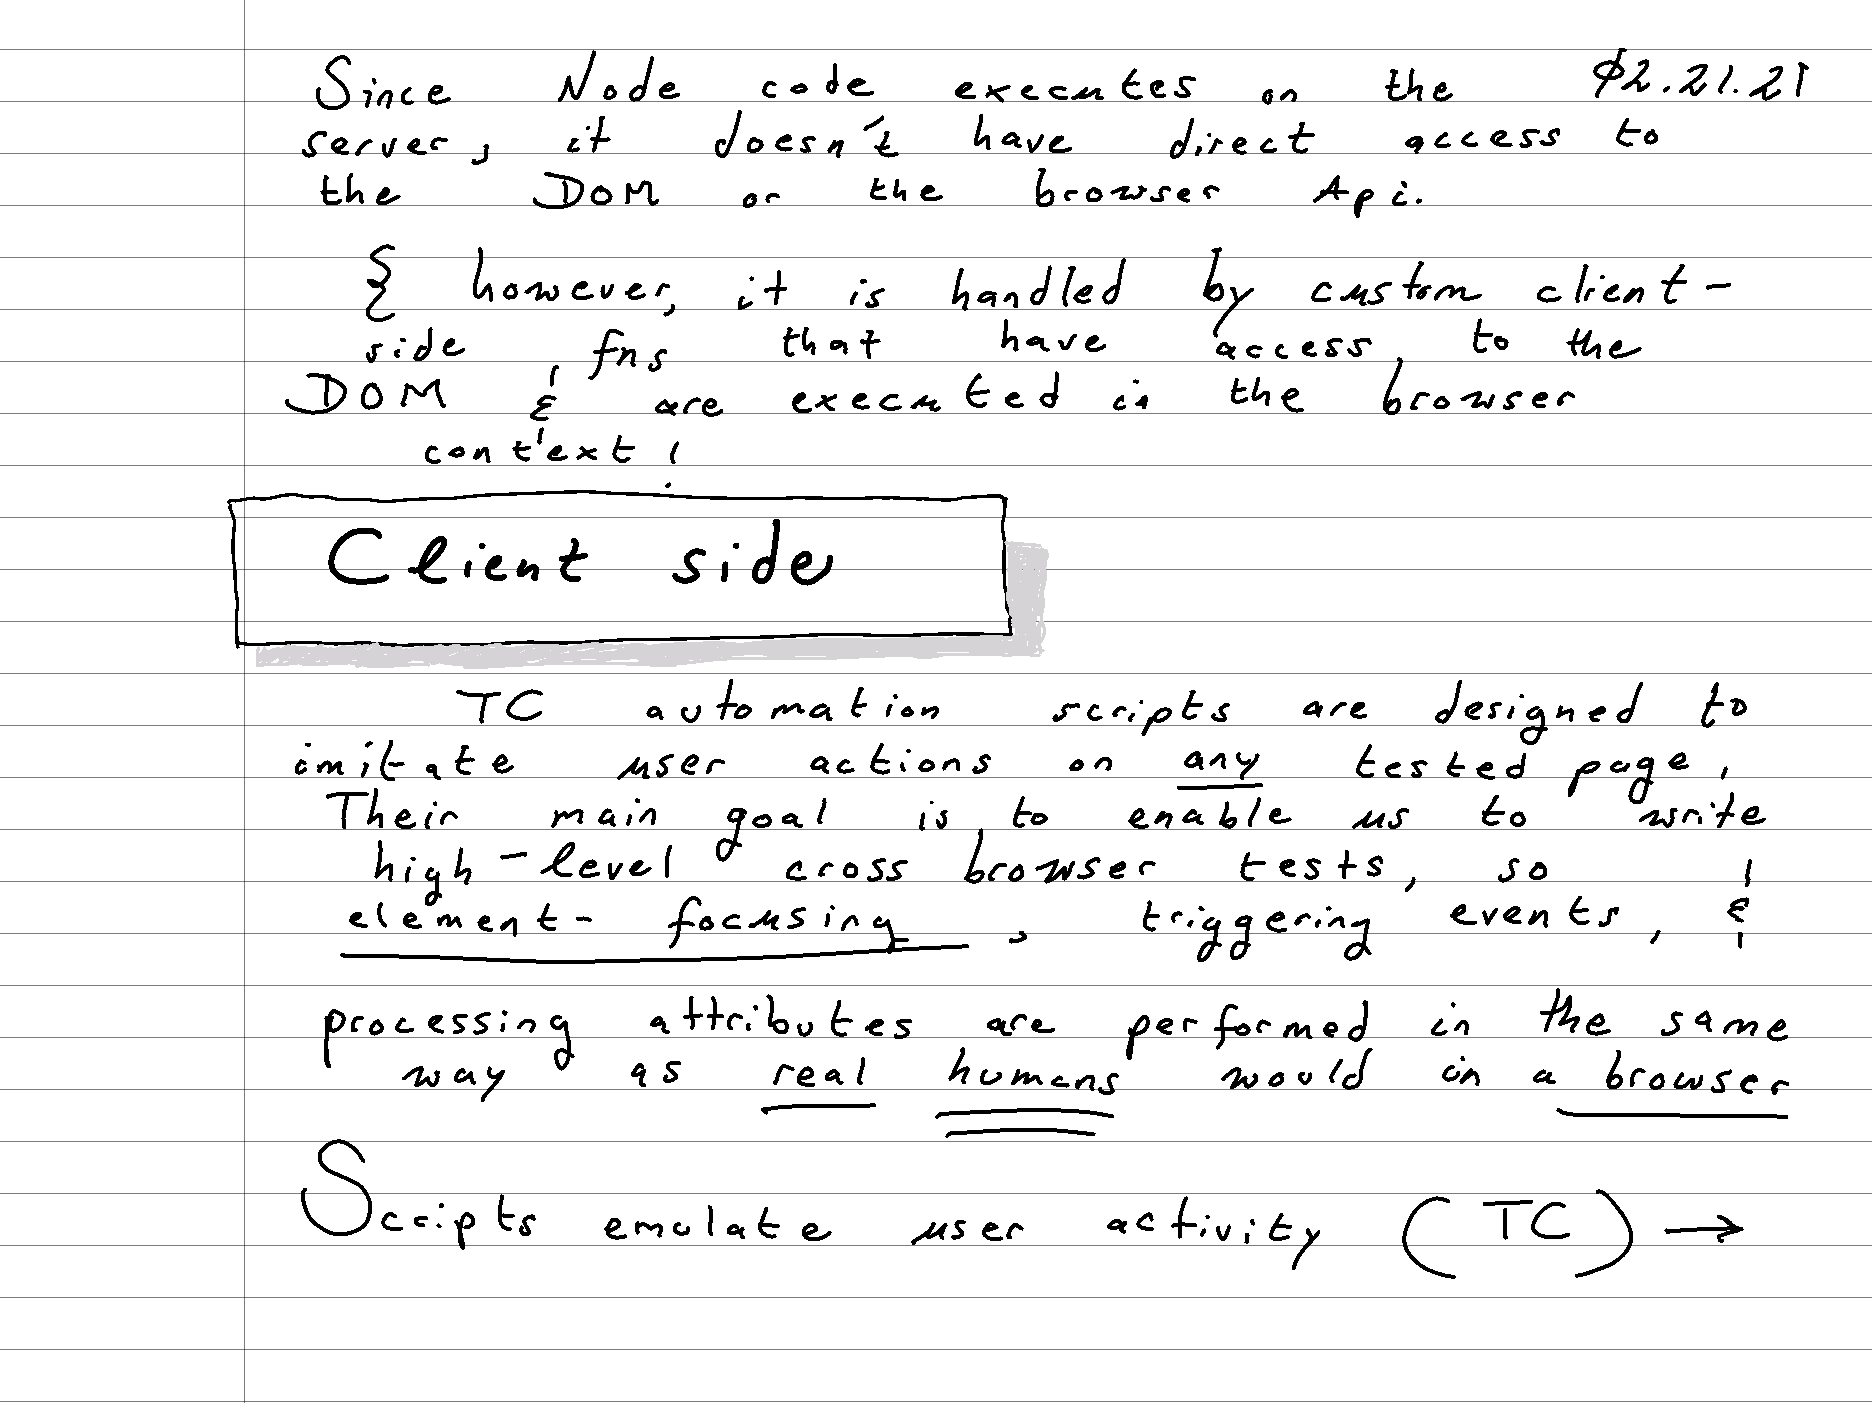 Since Node code executes on the 02.21.21
server, it doesn't have direct access to
the DOM or the browser Api.
{ however, it is handled by custom client-
side fns that have access to the
DOM & are executed in the browser
context!
Client side
TC automation scripts are designed to
imitate user actions on any tested page,
Their main goal is to enable us to write
high-level cross browser tests, so
element-focusing, triggering events, &
processing attributes are performed in the same
way as real humans would in a browser
Scripts emulate user activity (TC) →